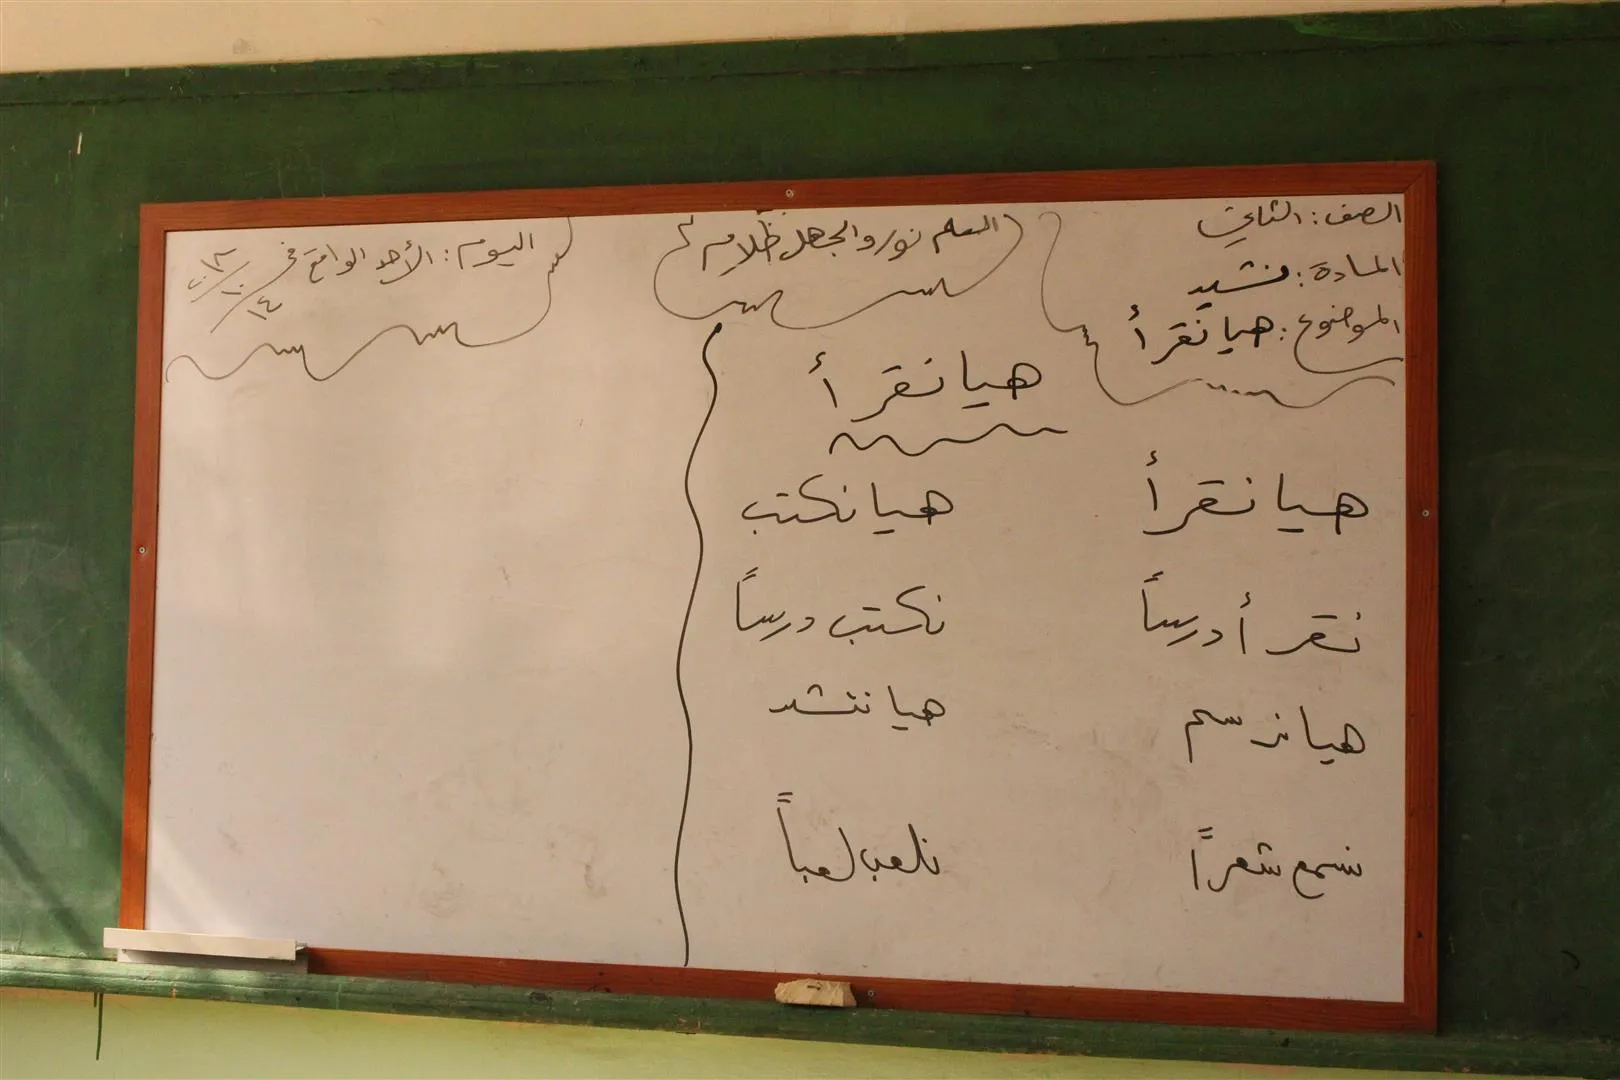 الصف: الثاني
المادة: نشيد
الموضوع: هيا نقرأ
العلم نور والجهل ظلام
اليوم: الأحد الواقع في
هيا نقرأ
هيا نقرأ هيا نكتب
نقرأ درساً نكتب درساً
هيا نرسم هيا ننشد
نسمع شعراً نلعب لعباً